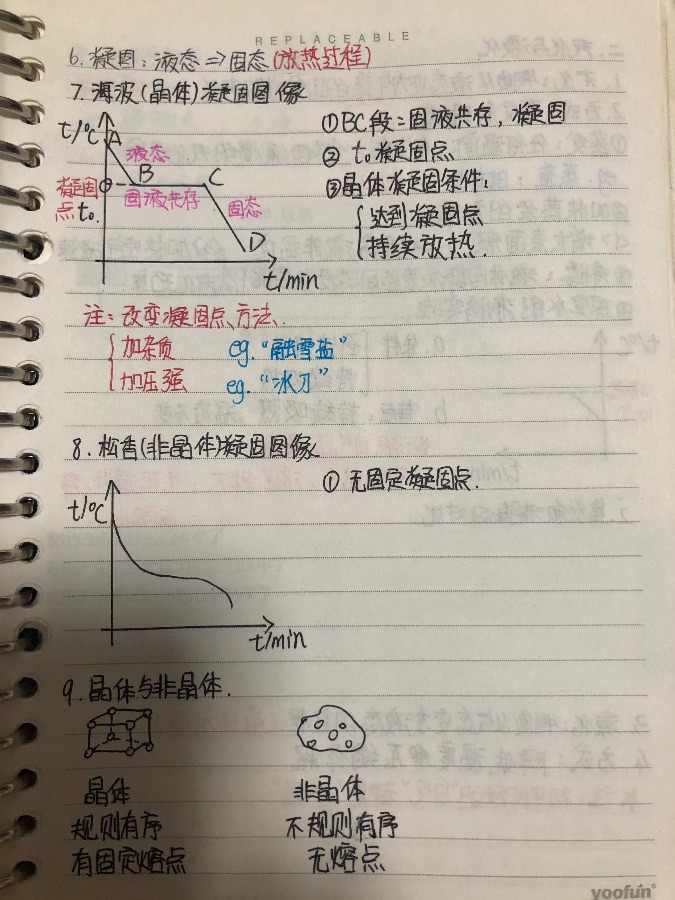 REPLACEABLE
6. 凝固：液态⇒固态(放热过程)
7. 海波(晶体)凝固图像
t/℃
A
液态
B
C
凝固点 t₀
固液共存
固态
D
t/min
①BC段：固液共存，凝固
② t₀凝固点
③晶体凝固条件：
达到凝固点
持续放热.
注：改变凝固点方法.
加杂质 eg. “融雪盐”
加压强 eg. “冰刀”
8. 松香(非晶体)凝固图像
① 无固定凝固点.
t/℃
t/min
9. 晶体与非晶体.
晶体 非晶体
规则有序 不规则有序
有固定熔点 无熔点
yoofun